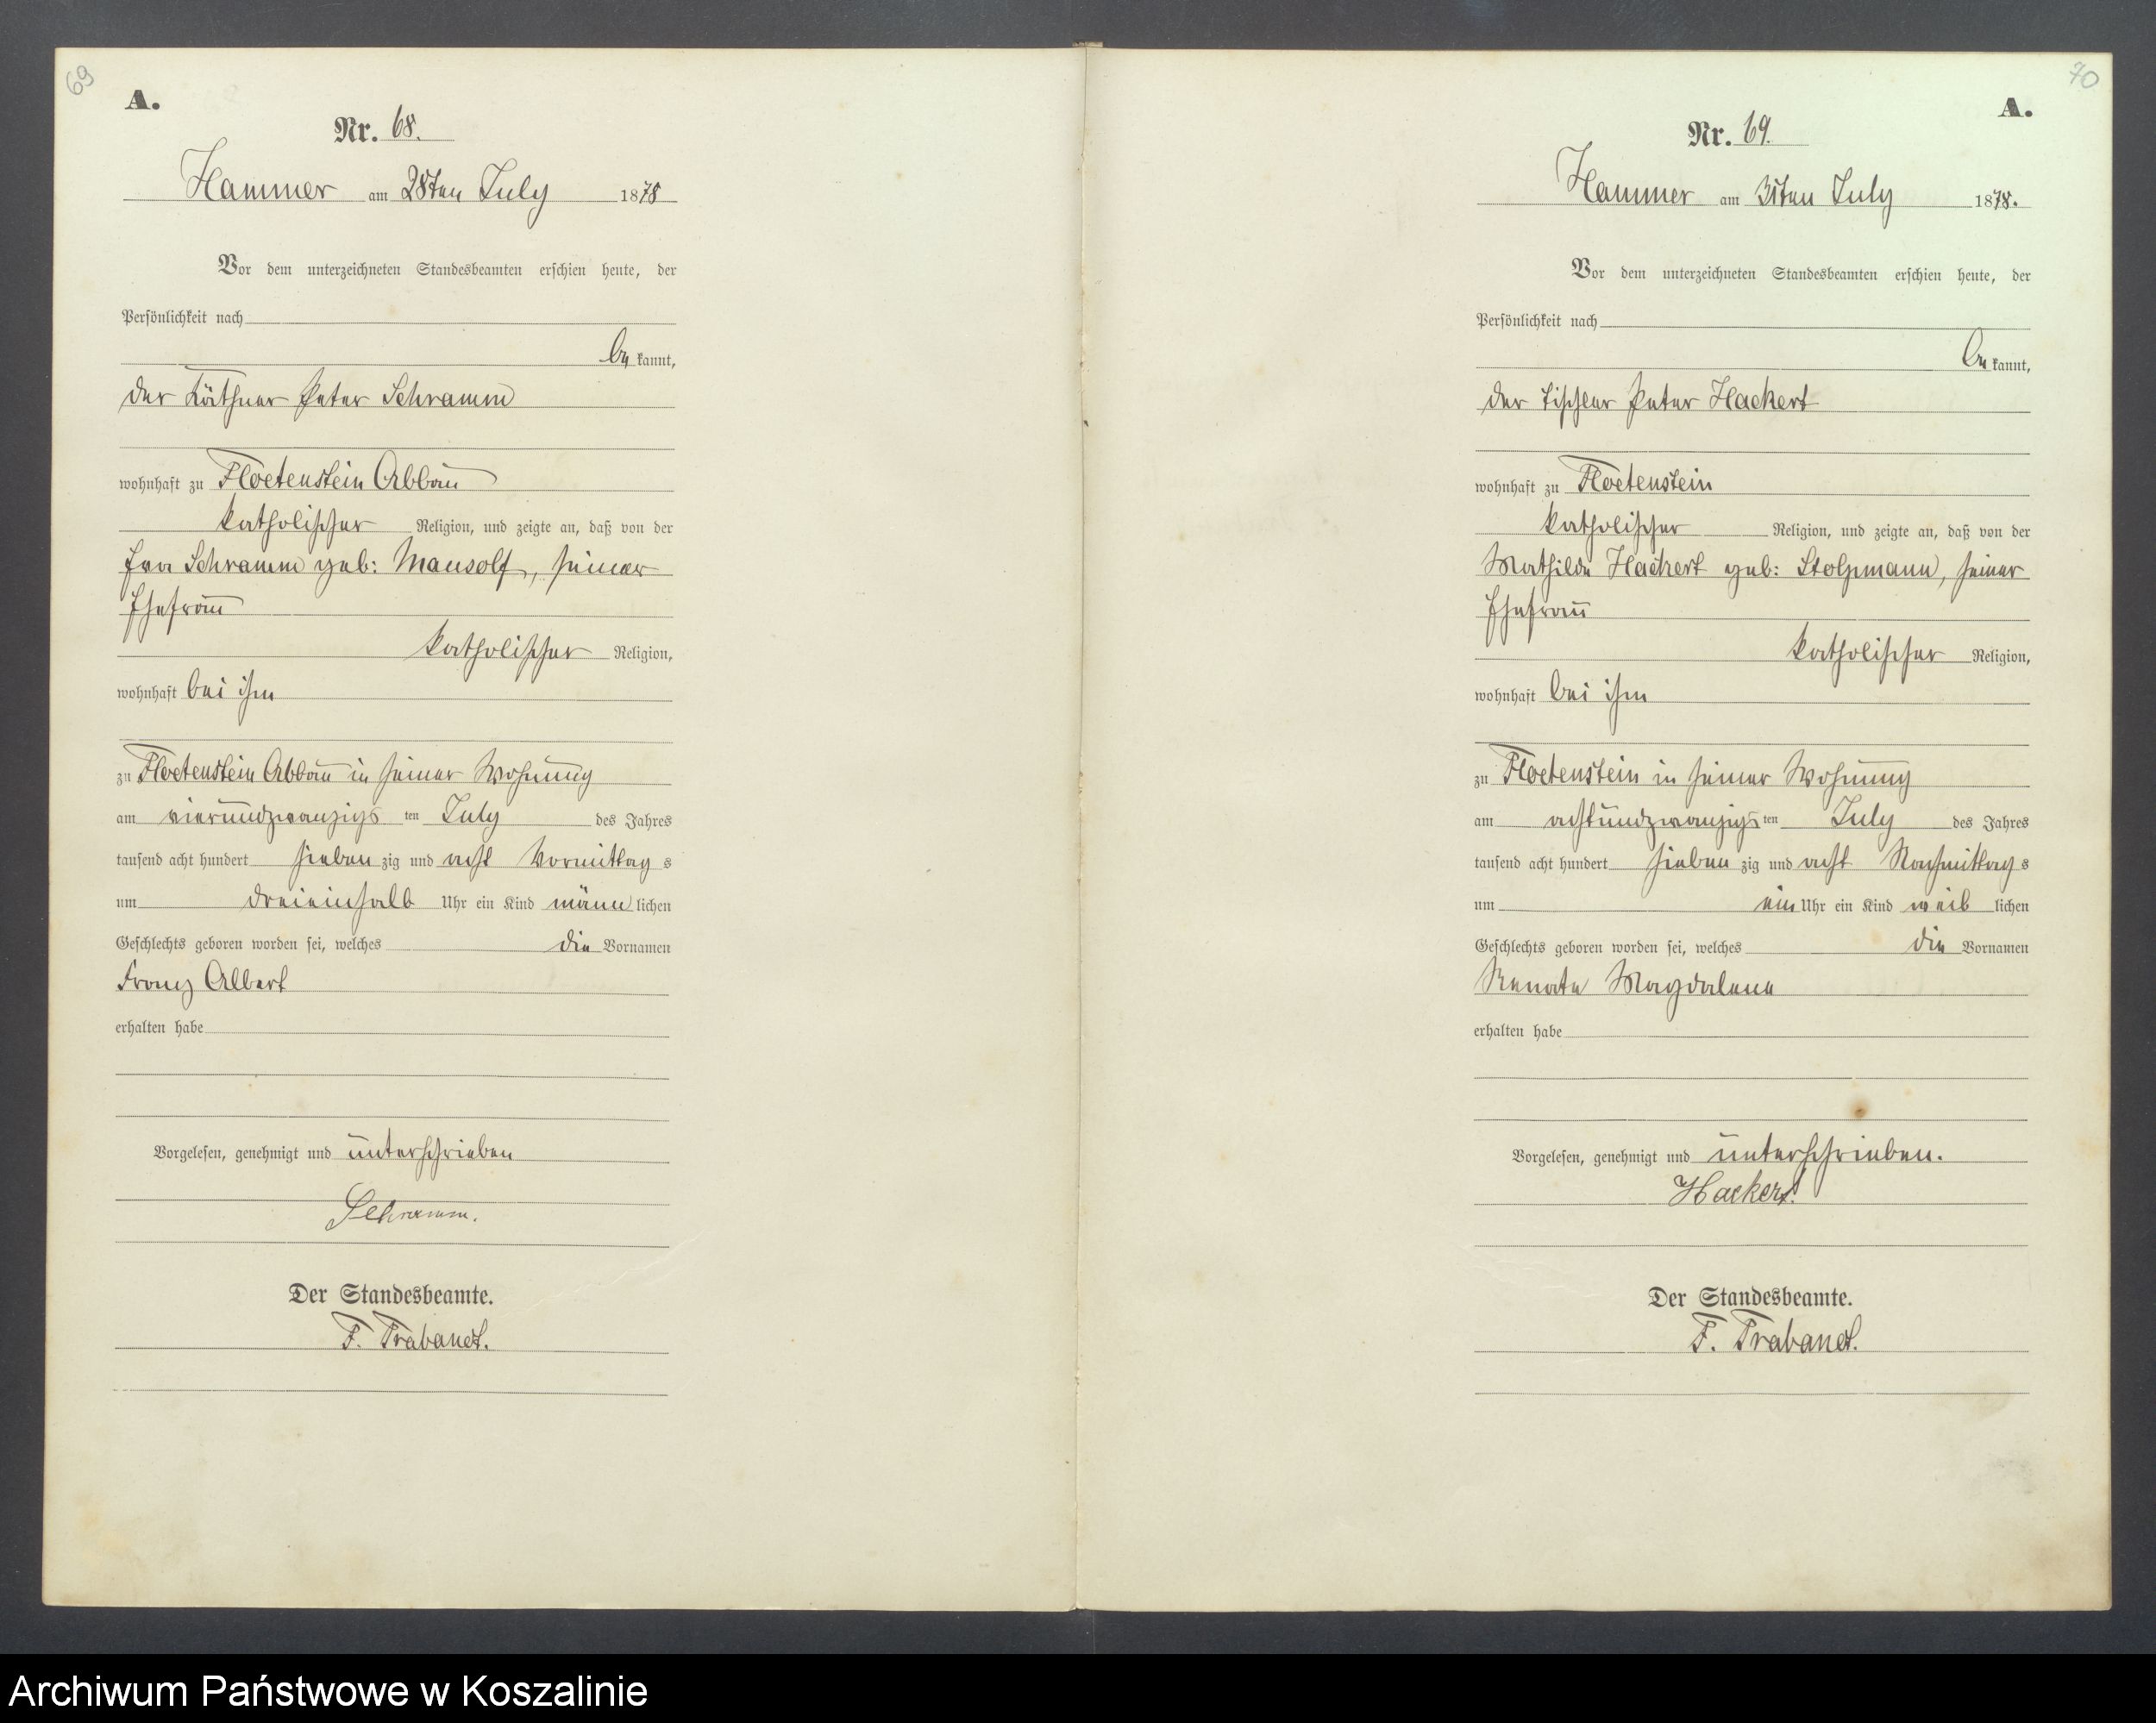 69
A.
Nr. 68.
Hammer am 28ten July 1878
Vor dem unterzeichneten Standesbeamten erschien heute, der
Persönlichkeit nach
be kannt,
der Käthner Peter Schramm
wohnhaft zu Floetenstein Abbau
katholischer Religion, und zeigte an, daß von der
Eva Schramm geb: Mausolf, seiner
Ehefrau
katholischer Religion,
wohnhaft bei ihm
zu Floetenstein Abbau in seiner Wohnung
am vierundzwanzigs ten July des Jahres
tausend acht hundert sieben zig und acht Vormittag s
um dreieinhalb Uhr ein Kind männ lichen
Geschlechts geboren worden sei, welches die Vornamen
Franz Albert
erhalten habe
Vorgelesen, genehmigt und unterschrieben
Schramm.
Der Standesbeamte.
F. Trabandt.
70
A.
Nr. 69.
Hammer am 31ten July 1878.
Vor dem unterzeichneten Standesbeamten erschien heute, der
Persönlichkeit nach
be kannt,
der Tischler Peter Hackert
wohnhaft zu Floetenstein
katholischer Religion, und zeigte an, daß von der
Mathilde Hackert geb: Stolpmann, seiner
Ehefrau
katholischer Religion,
wohnhaft bei ihm
zu Floetenstein in seiner Wohnung
am achtundzwanzigs ten July des Jahres
tausend acht hundert sieben zig und acht Nachmittag s
um ein Uhr ein Kind weib lichen
Geschlechts geboren worden sei, welches die Vornamen
Renate Magdalena
erhalten habe
Vorgelesen, genehmigt und unterschrieben.
Hackert.
Der Standesbeamte.
F. Trabandt.
Archiwum Państwowe w Koszalinie